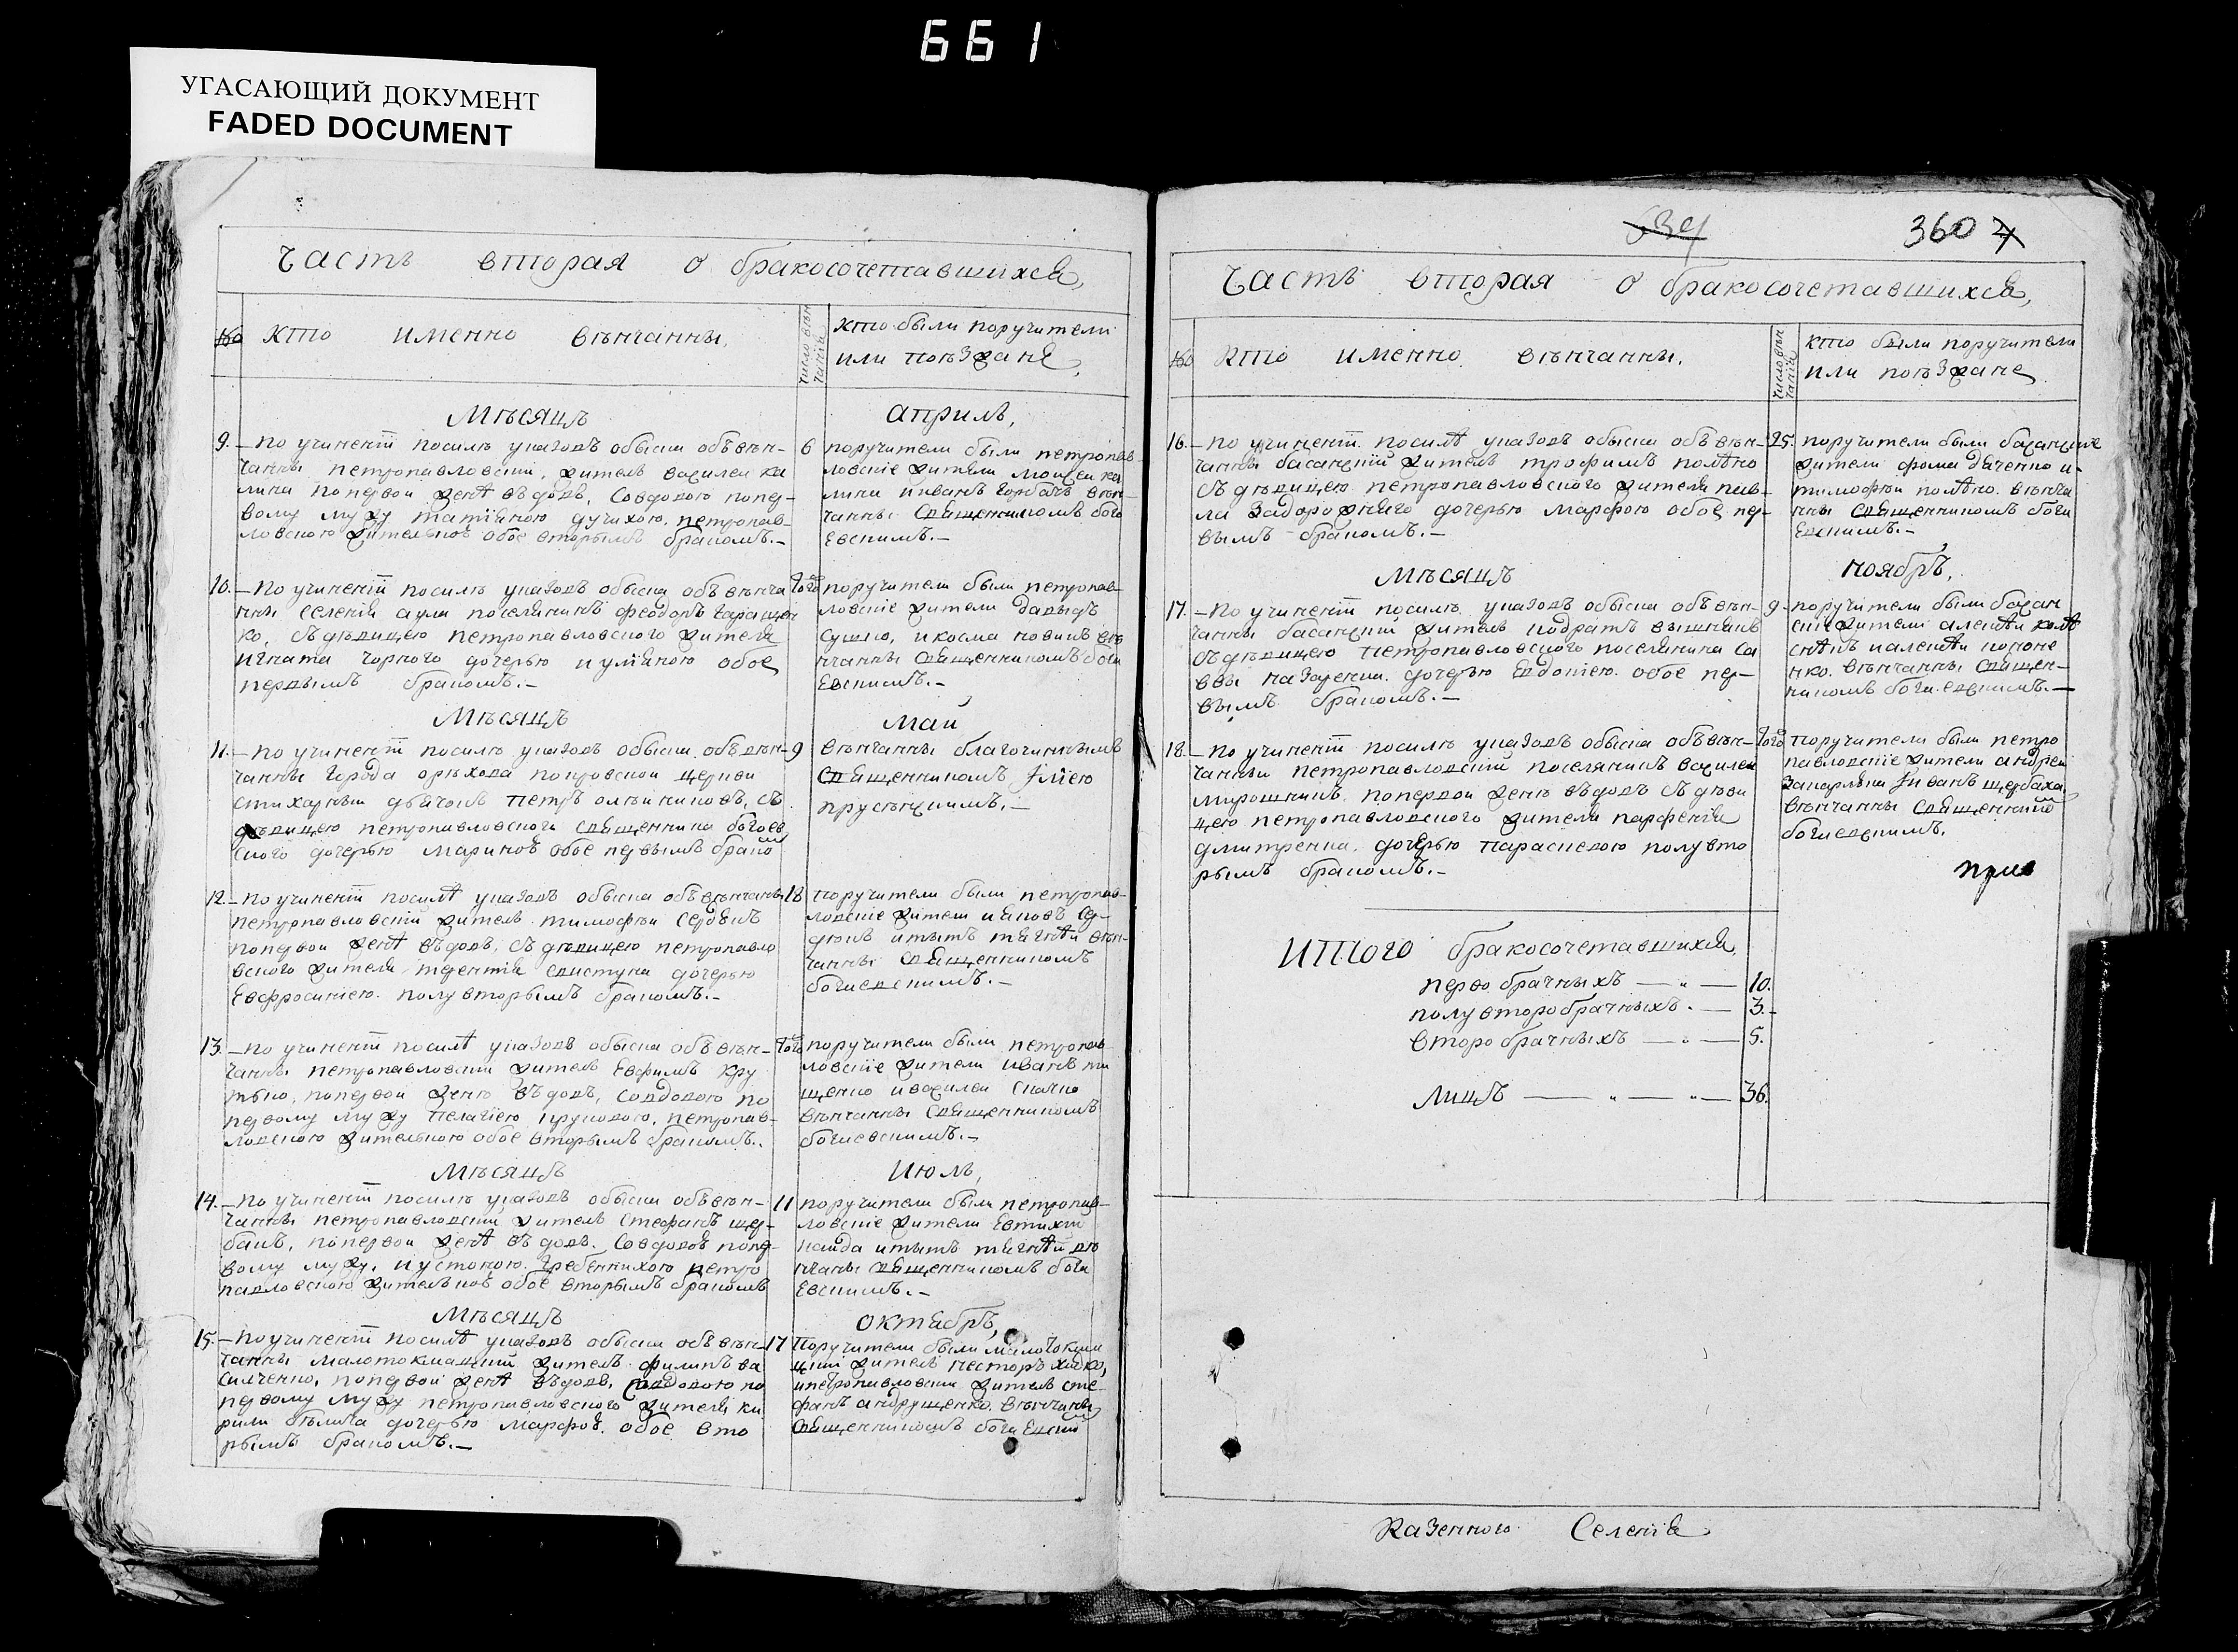 661
УГАСАЮЩИЙ ДОКУМЕНТ
FADED DOCUMENT
Часть вторая о бракосочетавшихся,
№ кто именно венчанны,
число вен чания
кто были поручители
или поезжане,
Мѣсяцъ Априль,
9. – По учиненіи посилѣ указовъ обыска объвѣн- 6
чанны петропавловскій житель василеи ка
лина попервои женѣ въдовъ, совдовою попер-
вому мужу татіяною дучихою, петропав-
ловскою жителькоѣ обое вторымъ бракомъ. –
поручители были петропав
ловские жители моисеи ка
лина иıванъ горбачъ вен-
чанны священникомъ бого
евскимъ. –
10. – По учиненіи посилѣ указовъ обыска объвѣнча того
нны селения аули поселянинъ феодоръ гаращен
ко, съдѣвицею петропавловского жителя
игната чорного дочерью иуліяною обое
первымъ бракомъ. –
поручители были петропав-
ловские жители давыдъ
сушко, и косма новикъ вѣ
нчанны священникомъ боги
евскимъ. –
Мѣсяцъ Май
11. – По учиненіи посилѣ указовъ обыска объвѣн- 9
чанны города орѣхова покровскои церкви
стихарныи дьячокъ петръ олѣиниковъ, съ
дѣвицею петропавловского священника богоев
ского дочерью мариноѣ обое первымъ брако
вѣнчанны благочиннымъ
священникомъ Илиею
прусенцимъ. –
12. – По учиненіи посилѣ указовъ обыска объвѣнчаны 18
петропавловскіи житель тимофѣи сердюкъ
попервои женѣ вѣдовъ, съ дѣвицею петропавло
вского жителя терентія свистуна дочерью
Евфросиніею полувторымъ бракомъ. –
поручители были петропав-
ловские жители ияковъ сер-
дюкъ итытъ тягнѣи вѣн-
чанны священникомъ
богиевскимъ. –
13. – По учиненіи посилѣ указовъ обыска объвѣн- того
чанны петропавловскіи житель Евфимъ кру
тько, попервои женѣ вѣдовъ, совдовою по
первому мужу пелагіею круковою, петропав-
ловскою жителькою обое вторымъ бракомъ.
поручители были петропав
ловские жители иванъ ти
щенко ивасилеи скачко
вѣнчанны священникомъ
богиевскимъ. –
Мѣсяцъ Июль,
14. – По учиненіи посилѣ указовъ обыска объвѣн- 11
чанны петропавловскіи житель стефанъ щер-
бакъ, попервои женѣ въдовъ. Совдовоѣ попер-
вому мужу, иустокою гребеннихою петро
павловскою жителькоѣ обое вторымъ бракомъ
поручители были петропав-
ловские жители Евтихіи
каида итытъ тягнѣи вѣ
нчаны священникомъ боги
евскимъ. –
Мѣсяцъ Октябрь,
15. – По учиненіи посилѣ указовъ обыска объвѣн- 17
чанны малотокмацкии житель филипъ ва
силченко, попервои женѣ вѣдовъ, совдовою по
первому мужу петропавловского жителя ки
рила бѣлика дочерью марфоѣ обое вто
рымъ бракомъ. –
Поручители были малотокма
цкіи житель несторъ ходко,
ипетропавловскіи житель сте
фанъ андрущенко. вѣнчаны
священникомъ боги евски
534 3607
Часть вторая о бракосочетавшихся,
№ Кто именно венчанны.
число вен чания
кто были поручители
или поезжане
16. – По учиненіи посилѣ указовъ обыска объвѣн- 25.
чанны басанский житель трофимъ полѣко
съ дѣвицею петропавловского жителя пав-
ла задорожнего дочерью марфою обое пер-
вымъ бракомъ. –
поручители были басанские
жители фома дяченко и-
тимофѣи полѣко. вѣнча
нны священникомъ боги
евскимъ. –
Мѣсяцъ Ноябрь,
17. – По учиненіи посилѣ указовъ обыска объвѣн- 9.
чанны басанский житель кодратъ вышнякъ
съ дѣвицею петропавловского поселянина са
ввы назаренка дочерью евдокіею обое пер-
вымъ бракомъ. –
поручители были басан
скіе жители
нко. вѣнчанны священ-
никомъ боги евскимъ. –
18. – По учиненіи посилѣ указовъ обыска объвѣн- того
чанныи петропавловский поселянинъ василеи
мирошникъ попервои женѣ вѣдовъ съ дѣви
цею петропавловского жителя парфенія
дмитренка дочерью параскевою полувто
рымъ бракомъ. –
поручители были петро
павловские жители андреи
иванъ щербаха
вѣнчанны священнико
богиевскимъ.
при
ИТОГО бракосочетавшихся
перво брачныхъ — „ — 10.
полувторобрачныхъ. — 3.
второбрачныхъ — „ — 5.
лицъ — „ — „ — 36.
Казенного Селенія